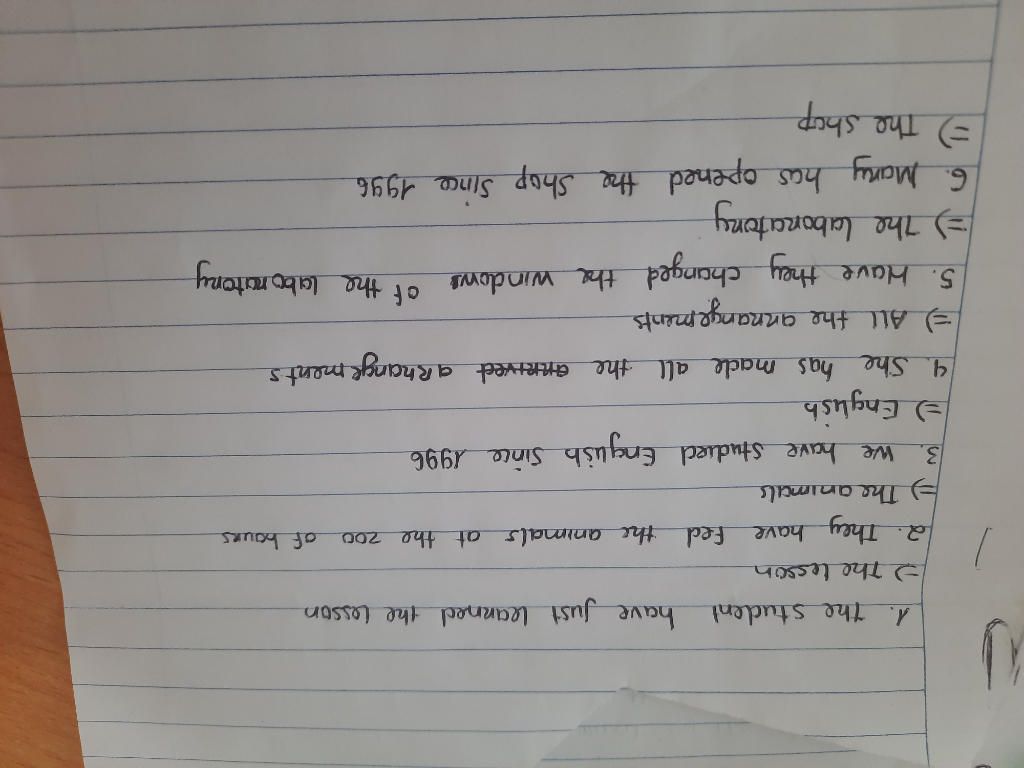 1. The student have just learned the lesson
=) The lesson
2. They have fed the animals at the zoo of hours
=) The animals
3. We have studied English since 1996
=) English
4. She has made all the arrangements
=) All the arrangements
5. Have they changed the window of the laboratory
=) The laboratory
6. Mary has opened the shop since 1996
=) The shop